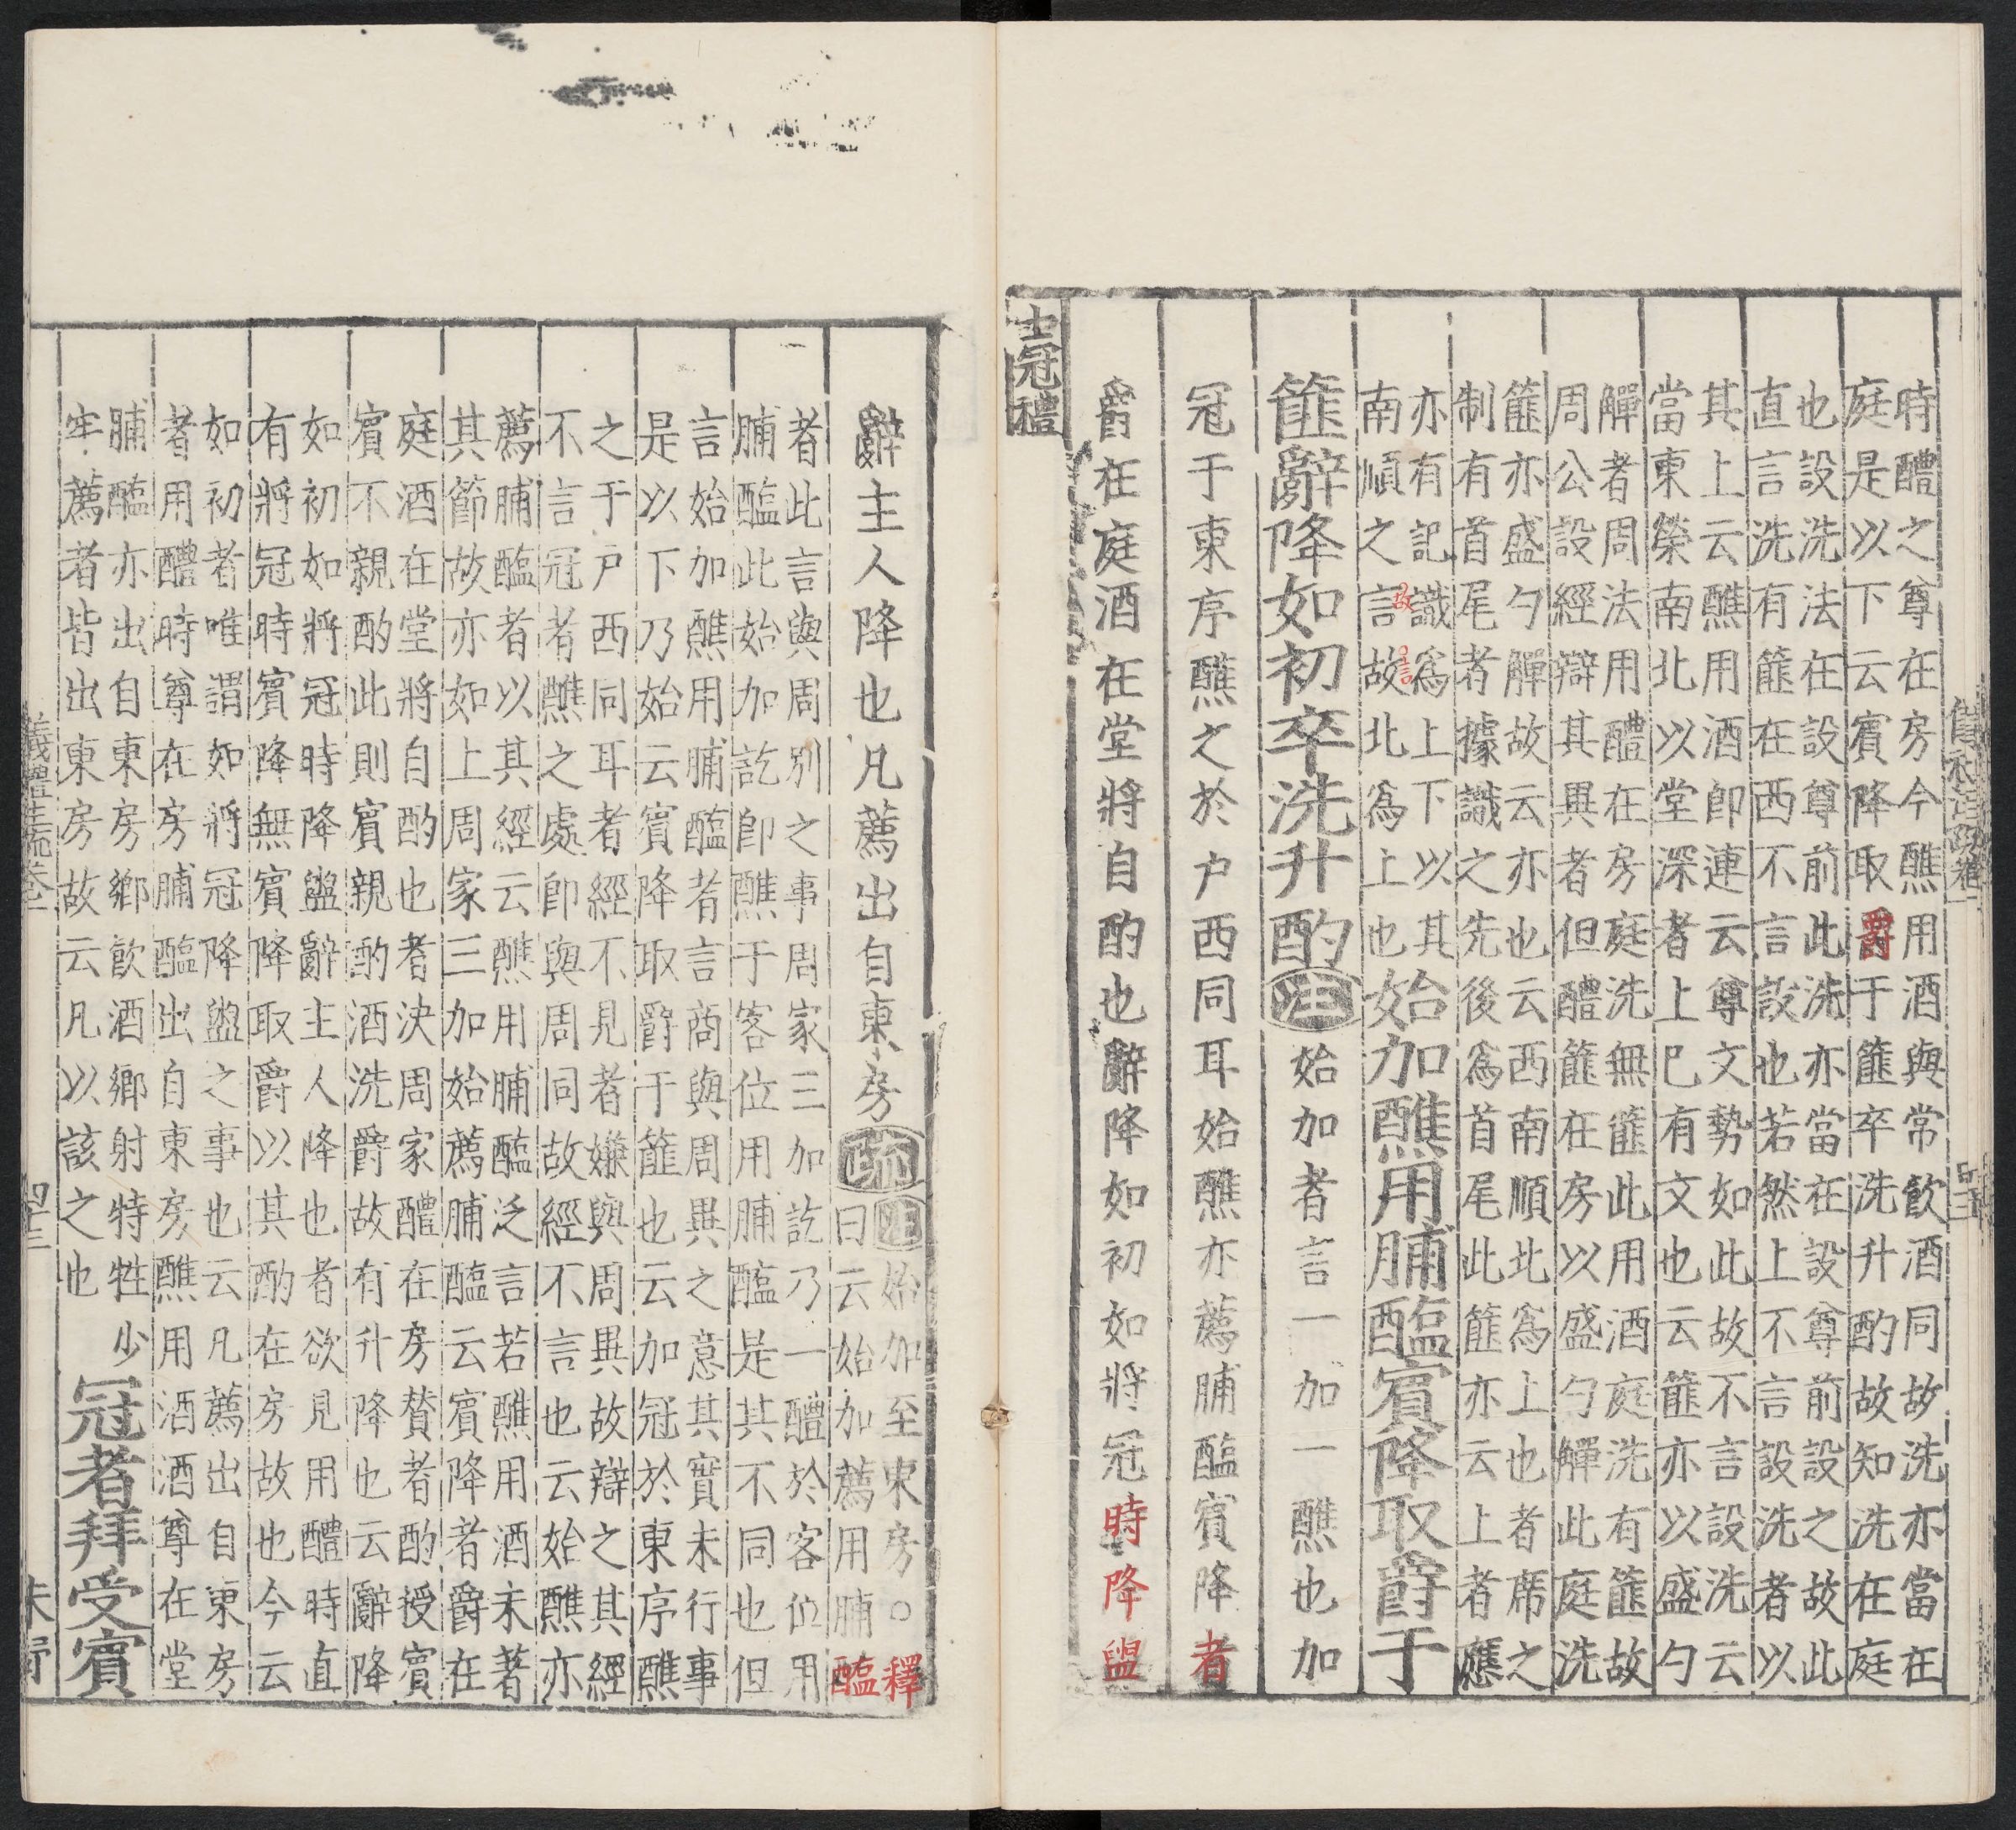 時醴之尊在房今醮用酒與常飲酒同故洗亦當在
庭是以下云賓降取爵于篚卒洗升酌故知洗在庭
也設洗法在設尊前此洗亦當在設尊前設之故此
直言洗有篚在西不言設也若然上不言設洗者以
其上云醮用酒即連云尊文勢如此故不言設洗云
當東榮南北以堂深者上巳有文也云篚亦以盛勺
觶者周法用醴在房庭洗無篚此用酒庭洗有篚故
周公設經辯其異者但醴篚在房以盛勺觶此庭洗
篚亦盛勺觶故云亦也云西南順北爲上也者席之
制有首尾者據識之先後爲首尾此篚亦云上者應
亦有記識爲上下以其
南順之言故北爲上也
故
言
始加醮用脯醢賓降取爵于
篚辭降如初卒洗升酌注始加者言一加一醮也加
冠于東序醮之於户西同耳始醮亦薦脯醢賓降者
爵在庭酒在堂將自酌也辭降如初如將冠時降盥
士冠禮
辭主人降也凡薦出自東房疏
注始加至東房○釋
曰云始加薦用脯醢
者此言與周別之事周家三加訖乃一醴於客位用
脯醢此始加訖即醮于客位用脯醢是其不同也但
言始加醮用脯醢者言商與周異之意其實未行事
是以下乃始云賓降取爵于篚也云加冠於東序醮
之于户西同耳者經不見者嫌與周異故辯之其經
不言冠者醮之處即與周同故經不言也云始醮亦
薦脯醢者以其經云醮用脯醢泛言若醮用酒未著
其節故亦如上周家三加始薦脯醢云賓降者爵在
庭酒在堂將自酌也者決周家醴在房贊者酌授賓
賓不親酌此則賓親酌酒洗爵故有升降也云辭降
如初如將冠時降盥辭主人降也者欲見用醴時直
有將冠時賓降無賓降取爵以其酌在房故也今云
如初者唯謂如將冠降盥之事也云凡薦出自東房
者用醴時尊在房脯醢出自東房醮用酒酒尊在堂
脯醢亦出自東房鄉飲酒鄉射特牲少
牢薦者皆出東房故云凡以該之也
冠者拜受賓